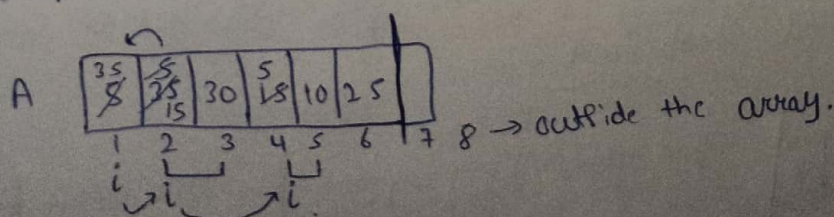 35 5 5
A 8 35 30 15 10 25
15
1 2 3 4 5 6 7 8 → outside the array.
i i i